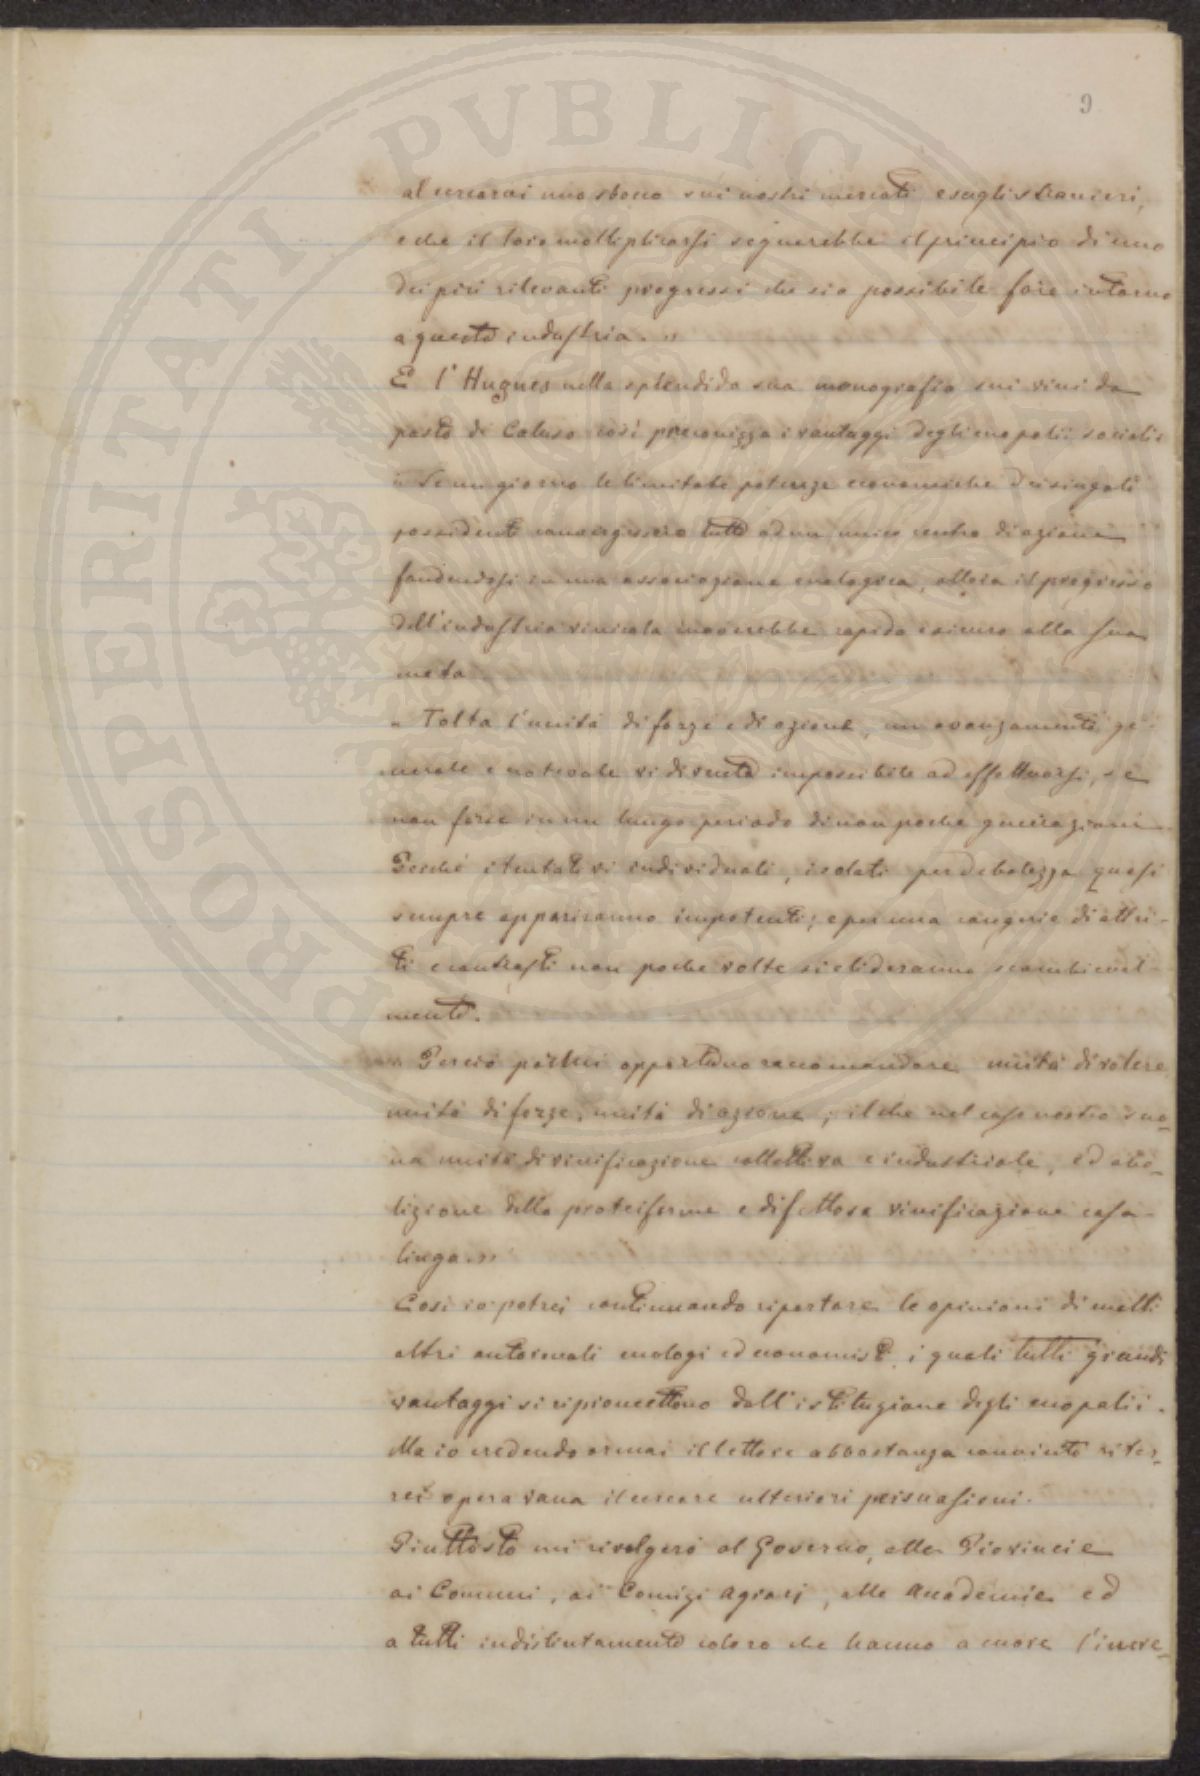 9
al cercarsi uno sbocco sui nostri mercati e sugli stranieri,
e che il loro moltiplicarsi segnerebbe il principio di uno
dei più rilevanti progressi che sia possibile fare intorno
a questa industria. »
E l'Hugues nella splendida sua monografia sui vini da
pasto di Caluso così preconizza i vantaggi degli enopolii sociali:
« Se un giorno le limitate potenze economiche dei singoli
possidenti convergessero tutte ad un unico centro di azione
fondendosi in una associazione enologica, allora il progresso
dell'industria vinicola moverebbe rapido e sicuro alla sua
meta
« Tolta l'unità di forze e di azione, un avanzamento ge-
nerale e notevole vi diventa impossibile ad effettuarsi, se
non forse in un lungo periodo di non poche generazioni.
Perché i tentativi individuali, isolati per debolezza quasi
sempre appariranno impotenti; e per una congerie di attri-
ti e contrasti non poche volte si elideranno scambievol-
mente.
« Perciò parmi opportuno raccomandare unità di volere
unità di forze, unità di azione; il che nel caso nostro suo-
na unità di vinificazione collettiva e industriale, ed abo-
lizione della proteiforme e difettosa vinificazione casa-
linga. »
Così io potrei continuando riportare le opinioni di molti
altri autorevoli enologi ed economisti, i quali tutti grandi
vantaggi si ripromettono dall'istituzione degli enopolii.
Ma io credendo ormai il lettore abbastanza convinto riter-
rei opera vana il cercare ulteriori persuasioni.
Piuttosto mi rivolgerò al Governo, alle Provincie
ai Comuni, ai Comizi Agrarj, alle Accademie ed
a tutti indistintamente coloro che hanno a cuore l'incre-
PROSPERITATI PVBLICAE